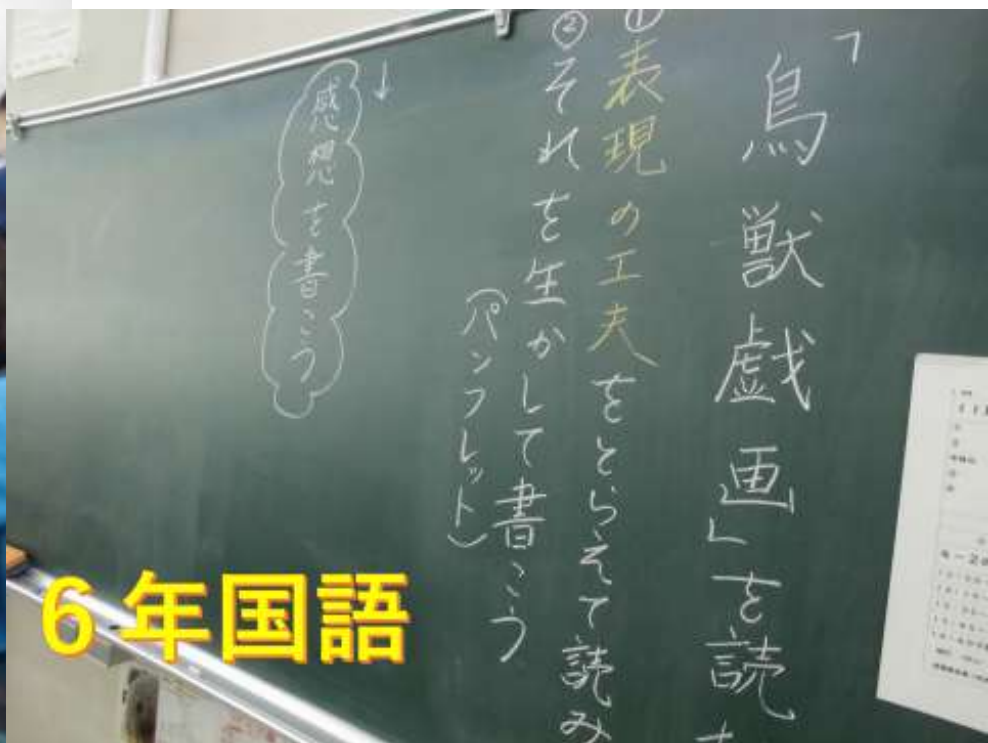 「鳥獣戯画」を読
①表現の工夫をとらえて読み
②それを生かして書こう
(パンフレット)
↓
感想を書こう
６年国語